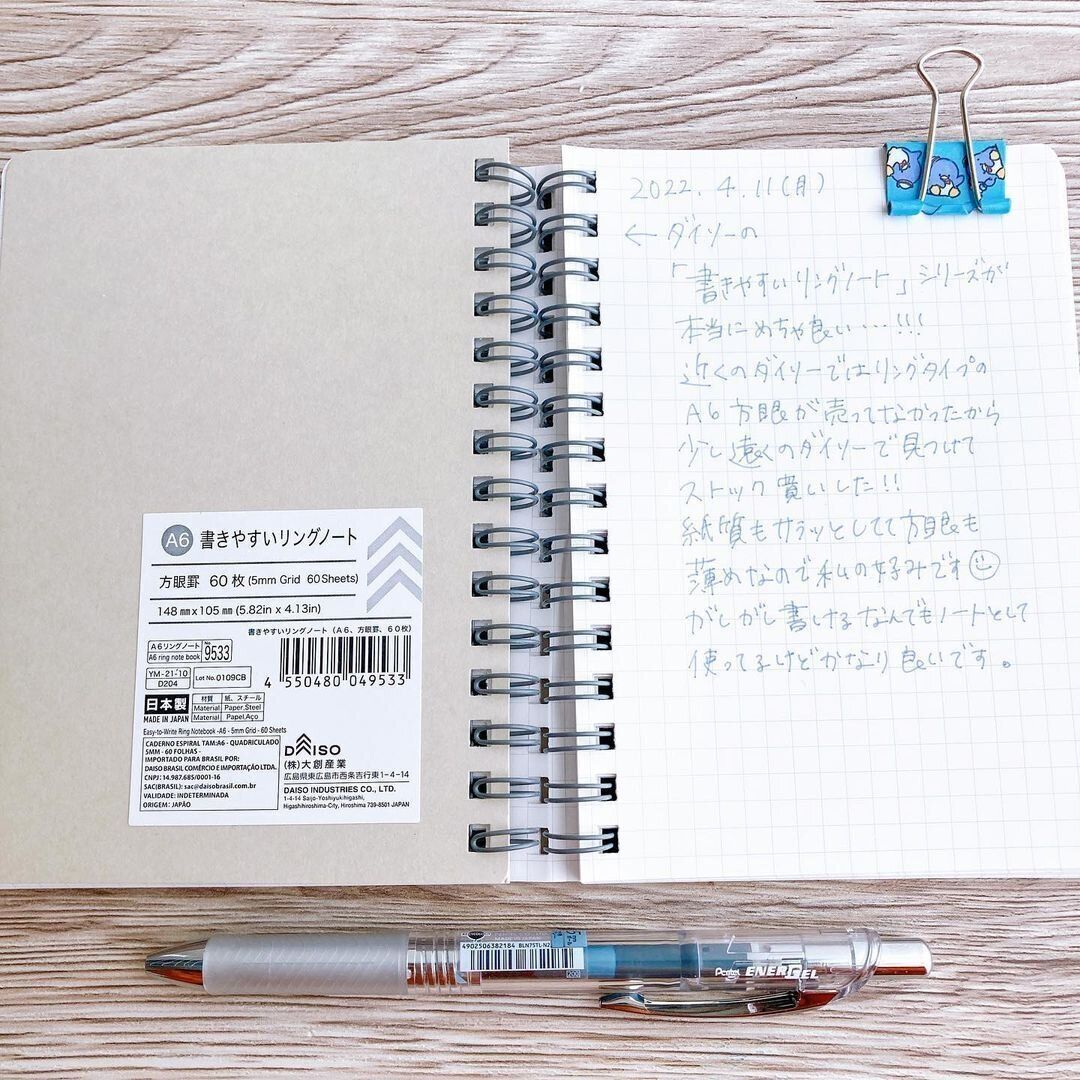 A6 書きやすいリングノート
方眼罫 60枚 (5mm Grid 60Sheets)
148㎜x105㎜ (5.82in x 4.13in)
書きやすいリングノート(A6、方眼罫、60枚)
A6リングノート No.
A6 ring note book 9533
YM-21-10
D204
Lot No.0109CB
4 550480 049533
日本製
MADE IN JAPAN
材質 紙、スチール
Material Paper.Steel
Material Papel.Aço
Easy-to-Write Ring Notebook -A6 - 5mm Grid - 60 Sheets
CADERNO ESPIRAL TAM:A6 - QUADRICULADO
5MM - 60 FOLHAS -
IMPORTADO PARA BRASIL POR:
DAISO BRASIL COMÉRCIO E IMPORTAÇÃO LTDA.
CNPJ: 14.987.685/0001-16
SAC(BRASIL): sac@daisobrasil.com.br
VALIDADE: INDETERMINADA
ORIGEM: JAPÃO
DAISO
(株)大創産業
広島県東広島市西条吉行東1-4-14
DAISO INDUSTRIES CO., LTD.
1-4-14 Saijo-Yoshiyukihigashi,
Higashihiroshima-City, Hiroshima 739-8501 JAPAN
2022.4.11(月)
←ダイソーの
「書きやすいリングノート」シリーズが
本当にめちゃ良い…!!!
近くのダイソーではリングタイプの
A6方眼が売ってなかったから
少し遠くのダイソーで見つけて
ストック買いした!!
紙質もサラッとしてて方眼も
薄めなので私の好みです☺
がしがし書けるなんでもノートとして
使ってるけどかなり良いです。
4902506382184 BLN75TL-N2
200
Pentel ENERGEL